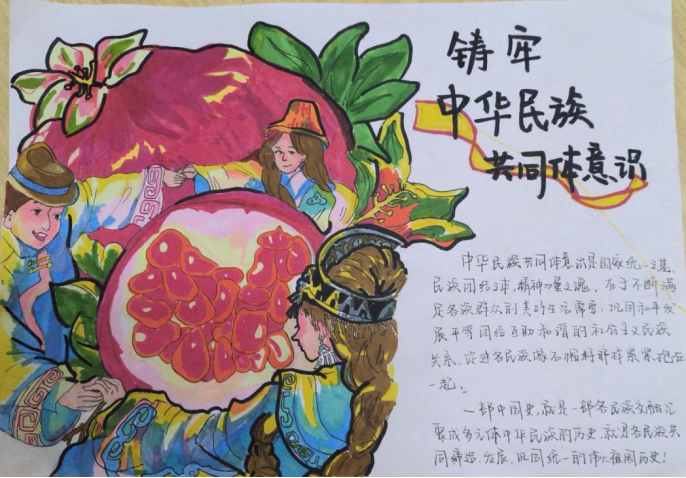 铸牢
中华民族
共同体意识
中华民族共同体意识是国家统一之基,
民族团结之本,精神力量之魂。在于不断满
足各族群众对美好生活需要,巩固和平发
展平等团结互助和谐的社会主义民族
关系,促进各民族像石榴籽那样紧紧抱在
一起。
一部中国史,就是一部各民族交融汇
聚成多元体中华民族的历史,就是各民族共
同缔造、发展、巩固统一的伟大祖国历史!